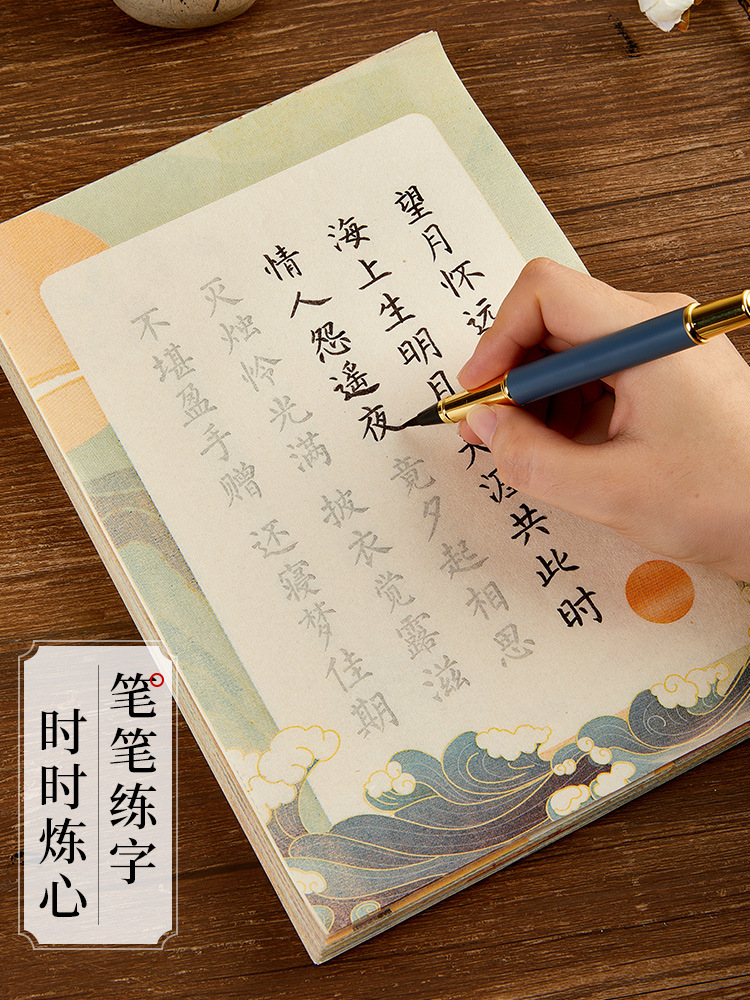 望月怀远
海上生明月 天涯共此时
情人怨遥夜 竟夕起相思
灭烛怜光满 披衣觉露滋
不堪盈手赠 还寝梦佳期
笔笔练字
时时炼心